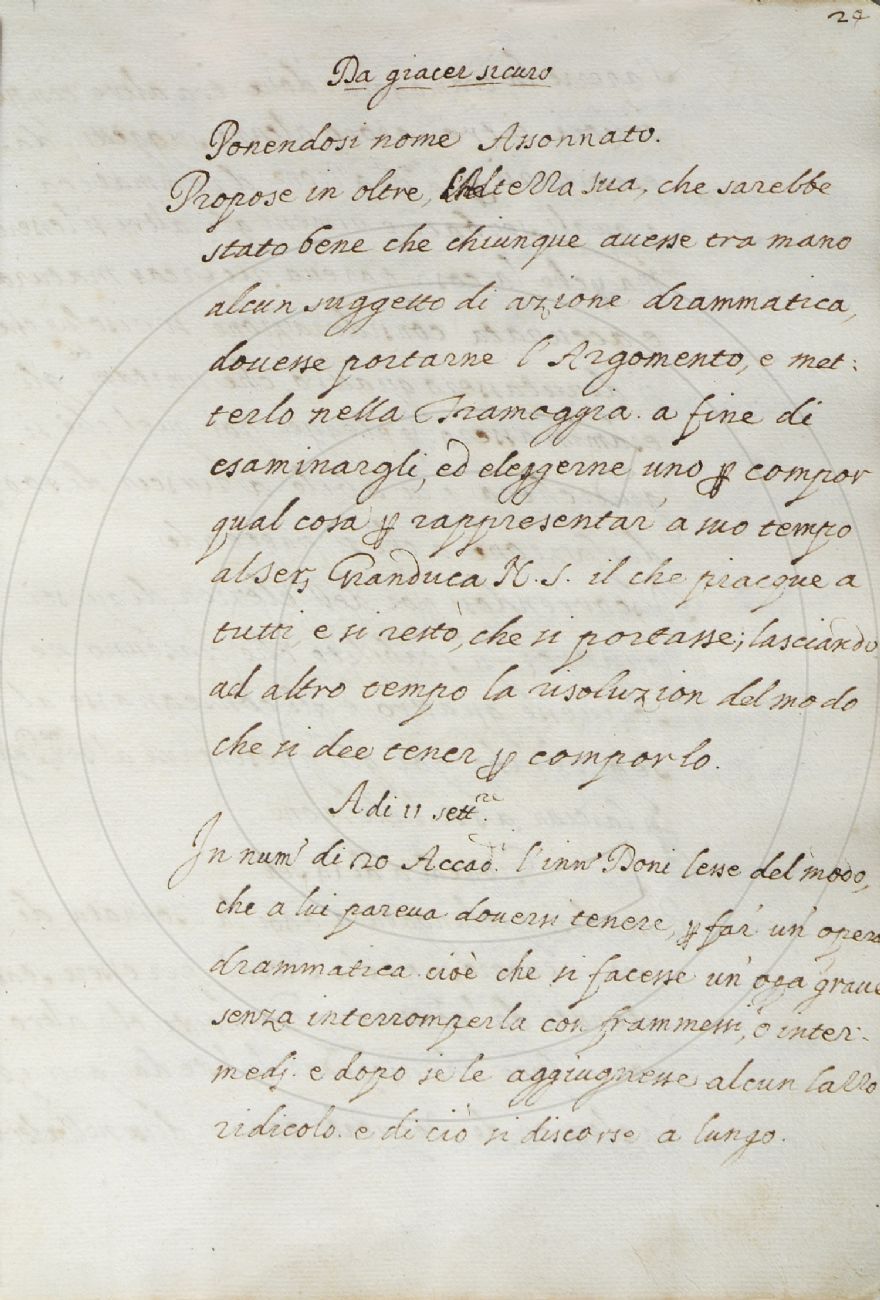 24
Da giacer sicuro
Ponendosi nome Assonnato.
Propose in oltre, Altezza sua, che sarebbe
stato bene che chiunque auesse tra mano
alcun suggetto di azione drammatica,
douesse portarne l'Argomento, e met:
terlo nella Tramoggia. a fine di
esaminargli, ed eleggerne uno ꝑ compor
qual cosa ꝑ rappresentar' a suo tempo
al Ser; Granduca N. S. il che piacque a
tutti, e si restò, che si portasse; lasciando
ad altro tempo la risoluzion del modo
che si dee tener ꝑ comporlo.
A di 11 sett.re
In num.o di 20 Accad.i l'inn.o Doni lesse del modo,
che a lui pareua douersi tenere, ꝑ far' un' opera
drammatica. cioè che si facesse un' oꝑa graue
senza interromperla con frammessi, o inter:
medj. e dopo se le aggiugnesse alcun lazzo
ridicolo. e di ciò si discorse a lungo.